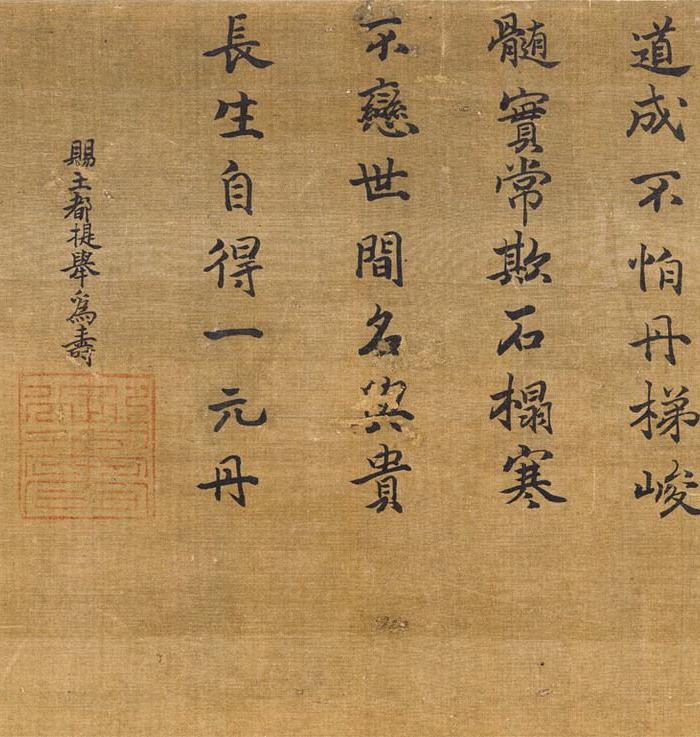 道成不怕丹梯峻
髓實常欺石榻寒
不戀世間名與貴
長生自得一元丹
賜王都提舉爲壽